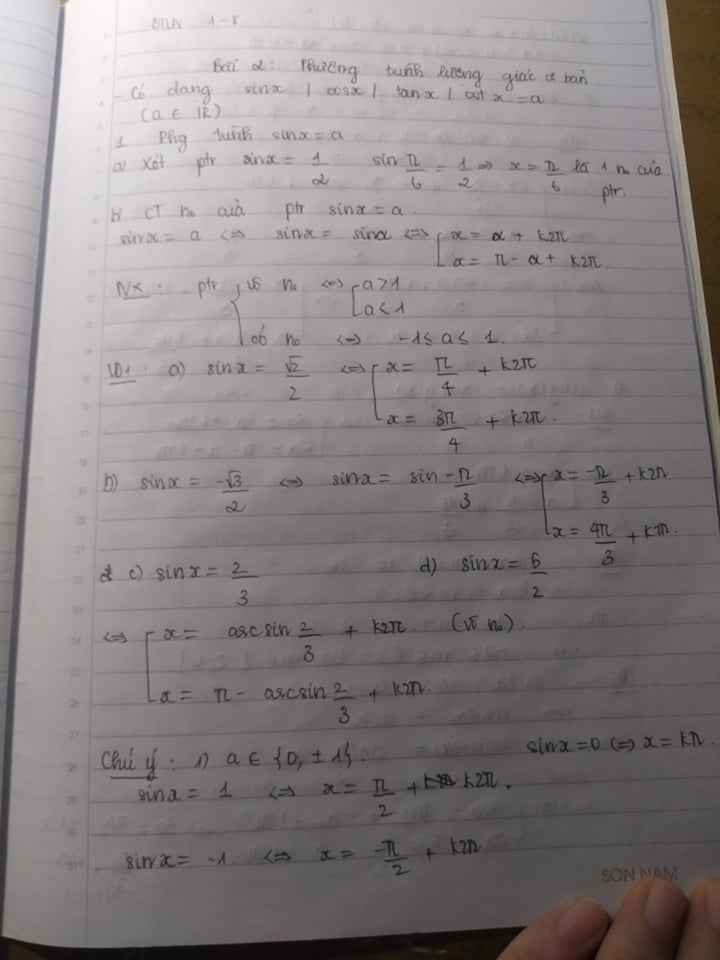 Bài 2: Phương trình lượng giác cơ bản
- Có dạng sinx | cosx | tanx | cot x = a
(a ∈ IR)
1 Phg trình sinx = a
a) Xét ptr sinx = 1/2 sin π/6 = 1/2 => x = π/6 là 1 no của ptr.
b) CT no của ptr sinx = a.
sinx = a <=> sinx = sinα <=> [ x = α + k2π
x = π - α + k2π.
NX: ptr { vô no <=> [ a > 1
a < 1
có no <=> -1 ≤ a ≤ 1.
VD1: a) sinx = √2/2 <=> [ x = π/4 + k2π
x = 3π/4 + k2π.
b) sinx = -√3/2 <=> sinx = sin -π/3 <=> [ x = -π/3 + k2π
x = 4π/3 + k2π.
c) sinx = 2/3 d) sinx = 6/2
<=> [ x = arcsin 2/3 + k2π (vô no).
x = π - arcsin 2/3 + k2π.
Chú ý: 1) a ∈ {0, ±1}. sinx = 0 <=> x = kπ.
sinx = 1 <=> x = π/2 + k2π.
sinx = -1 <=> x = -π/2 + k2π
SON NAM